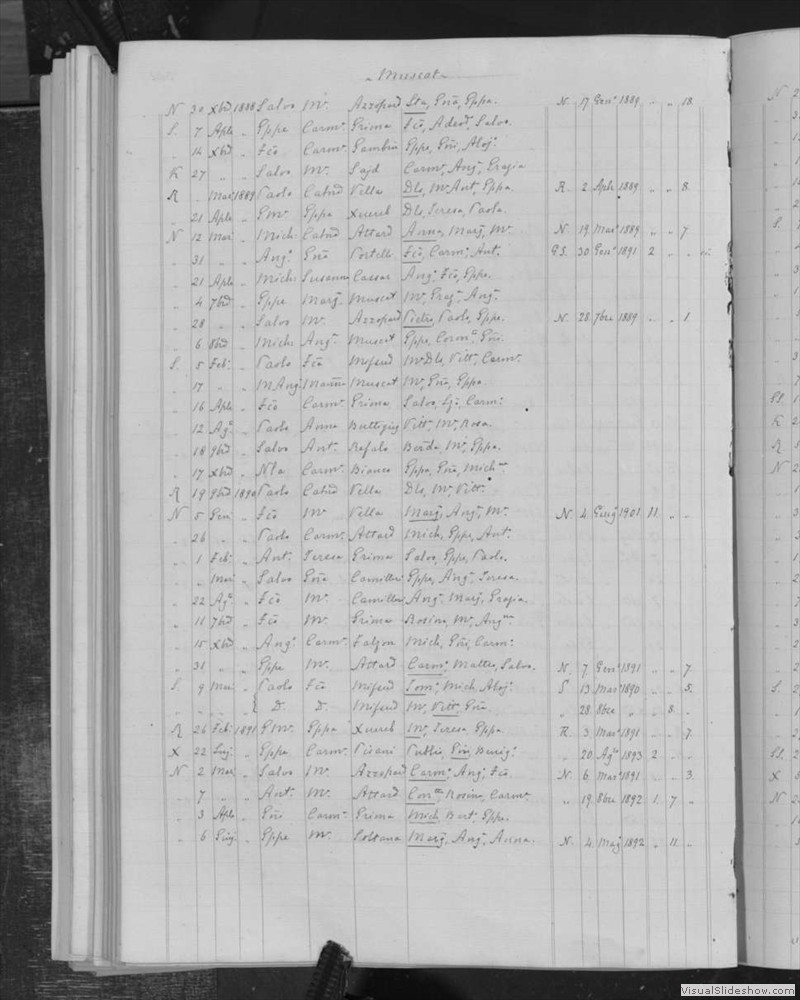 Muscat
N 30 Xbre 1888 Salvo M. Azzopard Sta, Gnã, Gppa. N. 17 Genº 1889 " " 18.
S. 7 Aple " Gppe Carmª Grima Fcõ, Adeodº, Salvo.
" 14 Xbre " Fcõ Carmª Gambin Gppe, Gñi, Alojº
K 27 " " Salvo M. Sajd Carmº, Angº, Grazia
R " Mar 1889 Paolo Catnã Vella Dlo, M. Antº, Gppa. R. 2. Aple 1889 " " 8.
" 21 Aple " GM. Gppa Xuereb Dlo, Teresa, Paola.
N 12 Mar " Mich Catnã Attard Anna, Margª, M. N. 19. Marº 1889 " " 7
" 31 " " Angº Gnã Portelli Fcã, Carmª, Antª GS. 30 Genº 1891 2 " "
" 21 Aple " Mich Susanna Cassar Angº, Fcõ, Gppe.
" 4 7bre " Gppe Margª Muscat M. Grazª, Angª
" 28 " " Salvo M. Azzopard Pietro, Paolo, Gppe. N. 28. 7bre 1889 " " 1.
" 6 8bre " Mich Angª Muscat Gppe, Carmº, Gñi.
S. 5 Feb. " Paolo Fcã Mifsud M. Dlo, Vittª, Carmª
" 17 " " M. Angº Marina Muscat M. Gnã, Gppa.
" 16 Aple " Fcõ Carmª Grima Salvo, Carmº
" 12 Agº " Paolo Anna Buttigieg Vittª, M. Rosa.
" 18 9bre " Salvo Antª Refalo M. Gppa.
" 17 Xbre " Nla Carmª Bianco Gppa, Gnã, Michna
R 19 9bre 1890 Paolo Catnã Vella Dlo, M. Vittª
N 5 Gen " Fcõ M. Vella Margª, Angª, M. N. 4. Giugº 1901 11 " "
" 26 " " Paolo Carmª Attard Mich, Gppe, Antº
" 1 Feb. " Antº Teresa Grima Salvo, Gppe, Paolo.
" " Mar " Salvo Gnã Camilleri Gppa, Angª, Teresa.
" 22 Agº " Fcõ M. Camilleri Angª, Margª, Grazia.
" 11 7bre " Fcõ M. Grima Rosina, M. Angna
" 15 Xbre " Angº Carmª Falzon Mich, Gñi, Carmº
" 31 " " Gppe M. Attard Carmº, Matteo, Salvo. N. 7 Genº 1891 " " 7
S. 9 Mar " Paolo Fcã Mifsud Tomº, Mich, Alojº S 13 Marº 1890 " " 5.
" " " " D. D. Mifsud M. Vittª, Gnã " 28. 8bre " " 8 "
R 26 Feb. 1891 GM. Gppa Xuereb M. Teresa, Gppa R. 3. Marº 1891 " " 7
X 22 Lug. " Gppe Carmª Pisani Publio, Gñi, Benigº " 20. Agº 1893 2 " "
N 2 Mar. " Salvo M. Azzopard Carmº, Angº, Fcõ N. 6. Marº 1891 " " 3
" 7 " " Antº M. Attard Conna, Rosina, Carmª " 19. 8bre 1892 1 7 "
" 3 Aple " Gñi Carmª Grima Mich, Bartº, Gppe.
" 6 Giug. " Gppe M. Soltana Margª, Angª, Anna. N. 4. Mag 1892 " 11 "
VisualSlideshow.com